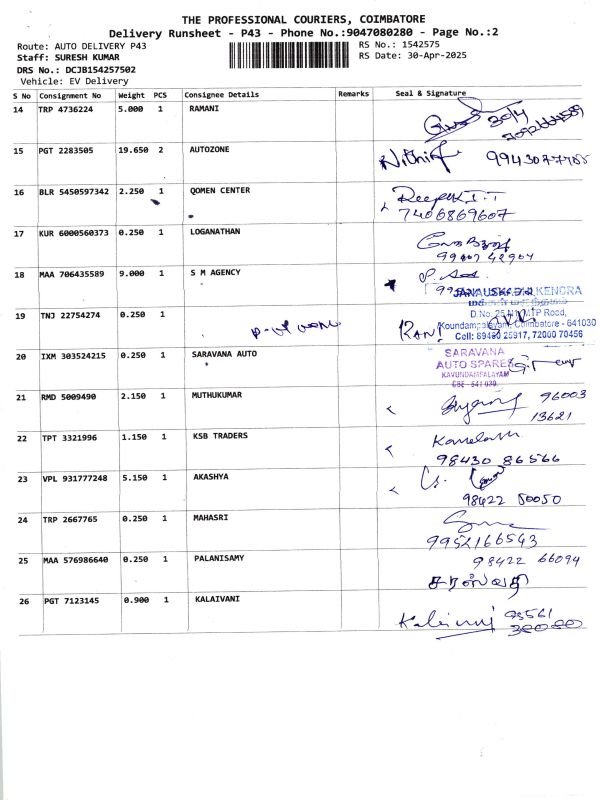 THE PROFESSIONAL COURIERS, COIMBATORE
Delivery Runsheet - P43 - Phone No.:9047080280 - Page No.:2
Route: AUTO DELIVERY P43
RS No.: 1542575
Staff: SURESH KUMAR
RS Date: 30-Apr-2025
DRS No.: DCJB154257502
Vehicle: EV Delivery
S No Consignment No Weight PCS Consignee Details Remarks Seal & Signature
14 TRP 4736224 5.000 1 RAMANI 30/4
15 PGT 2283505 19.650 2 AUTOZONE Nithik
16 BLR 5450597342 2.250 1 QOMEN CENTER Deepak I.T
7406869607
17 KUR 6000560373 0.250 1 LOGANATHAN
18 MAA 706435589 9.000 1 S M AGENCY
JANAUSHADHI KENDRA
மக்கள் மருந்தகம்
D.No. 25 MTP Road,
Koundampalayam, Coimbatore - 641030
Cell: 89460 25917, 72000 70456
19 TNJ 22754274 0.250 1 RANI
20 IXM 303524215 0.250 1 SARAVANA AUTO
SARAVANA
AUTO SPARES
KAVUNDAMPALAYAM
CBE - 641 030.
21 RMD 5009490 2.150 1 MUTHUKUMAR 96003
13621
22 TPT 3321996 1.150 1 KSB TRADERS
98430 86566
23 VPL 931777248 5.150 1 AKASHYA
98422 50050
24 TRP 2667765 0.250 1 MAHASRI
9952166543
25 MAA 576986640 0.250 1 PALANISAMY 98422 66094
சரஸ்வதி
26 PGT 7123145 0.900 1 KALAIVANI